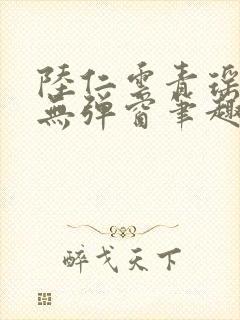 陸仁雲青瑤
無彈窗筆趣
醉戈天下